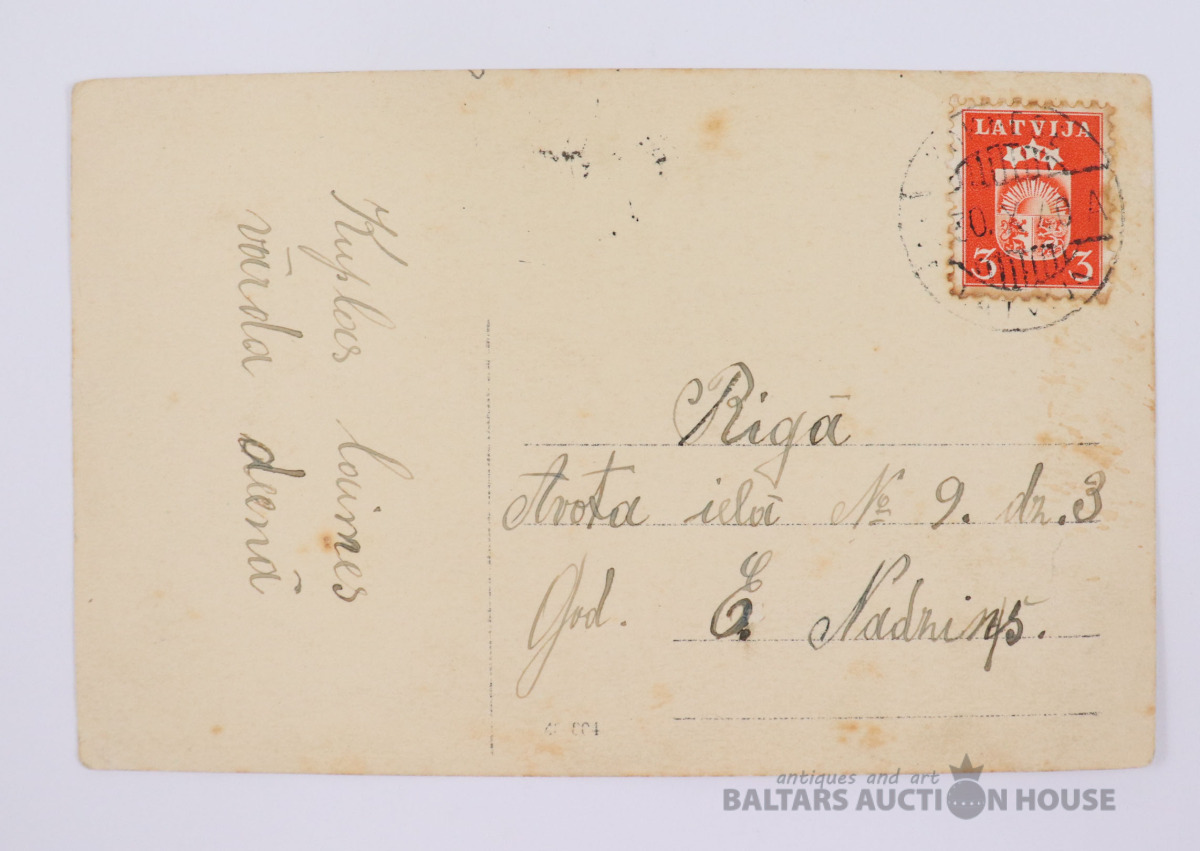 Kuplas laimes
vārda deenā
LATVIJA
3 3
Rigā
Avota ielā № 9. dz. 3
God. E. Nadziņš.
antiques and art
BALTARS AUCTION HOUSE